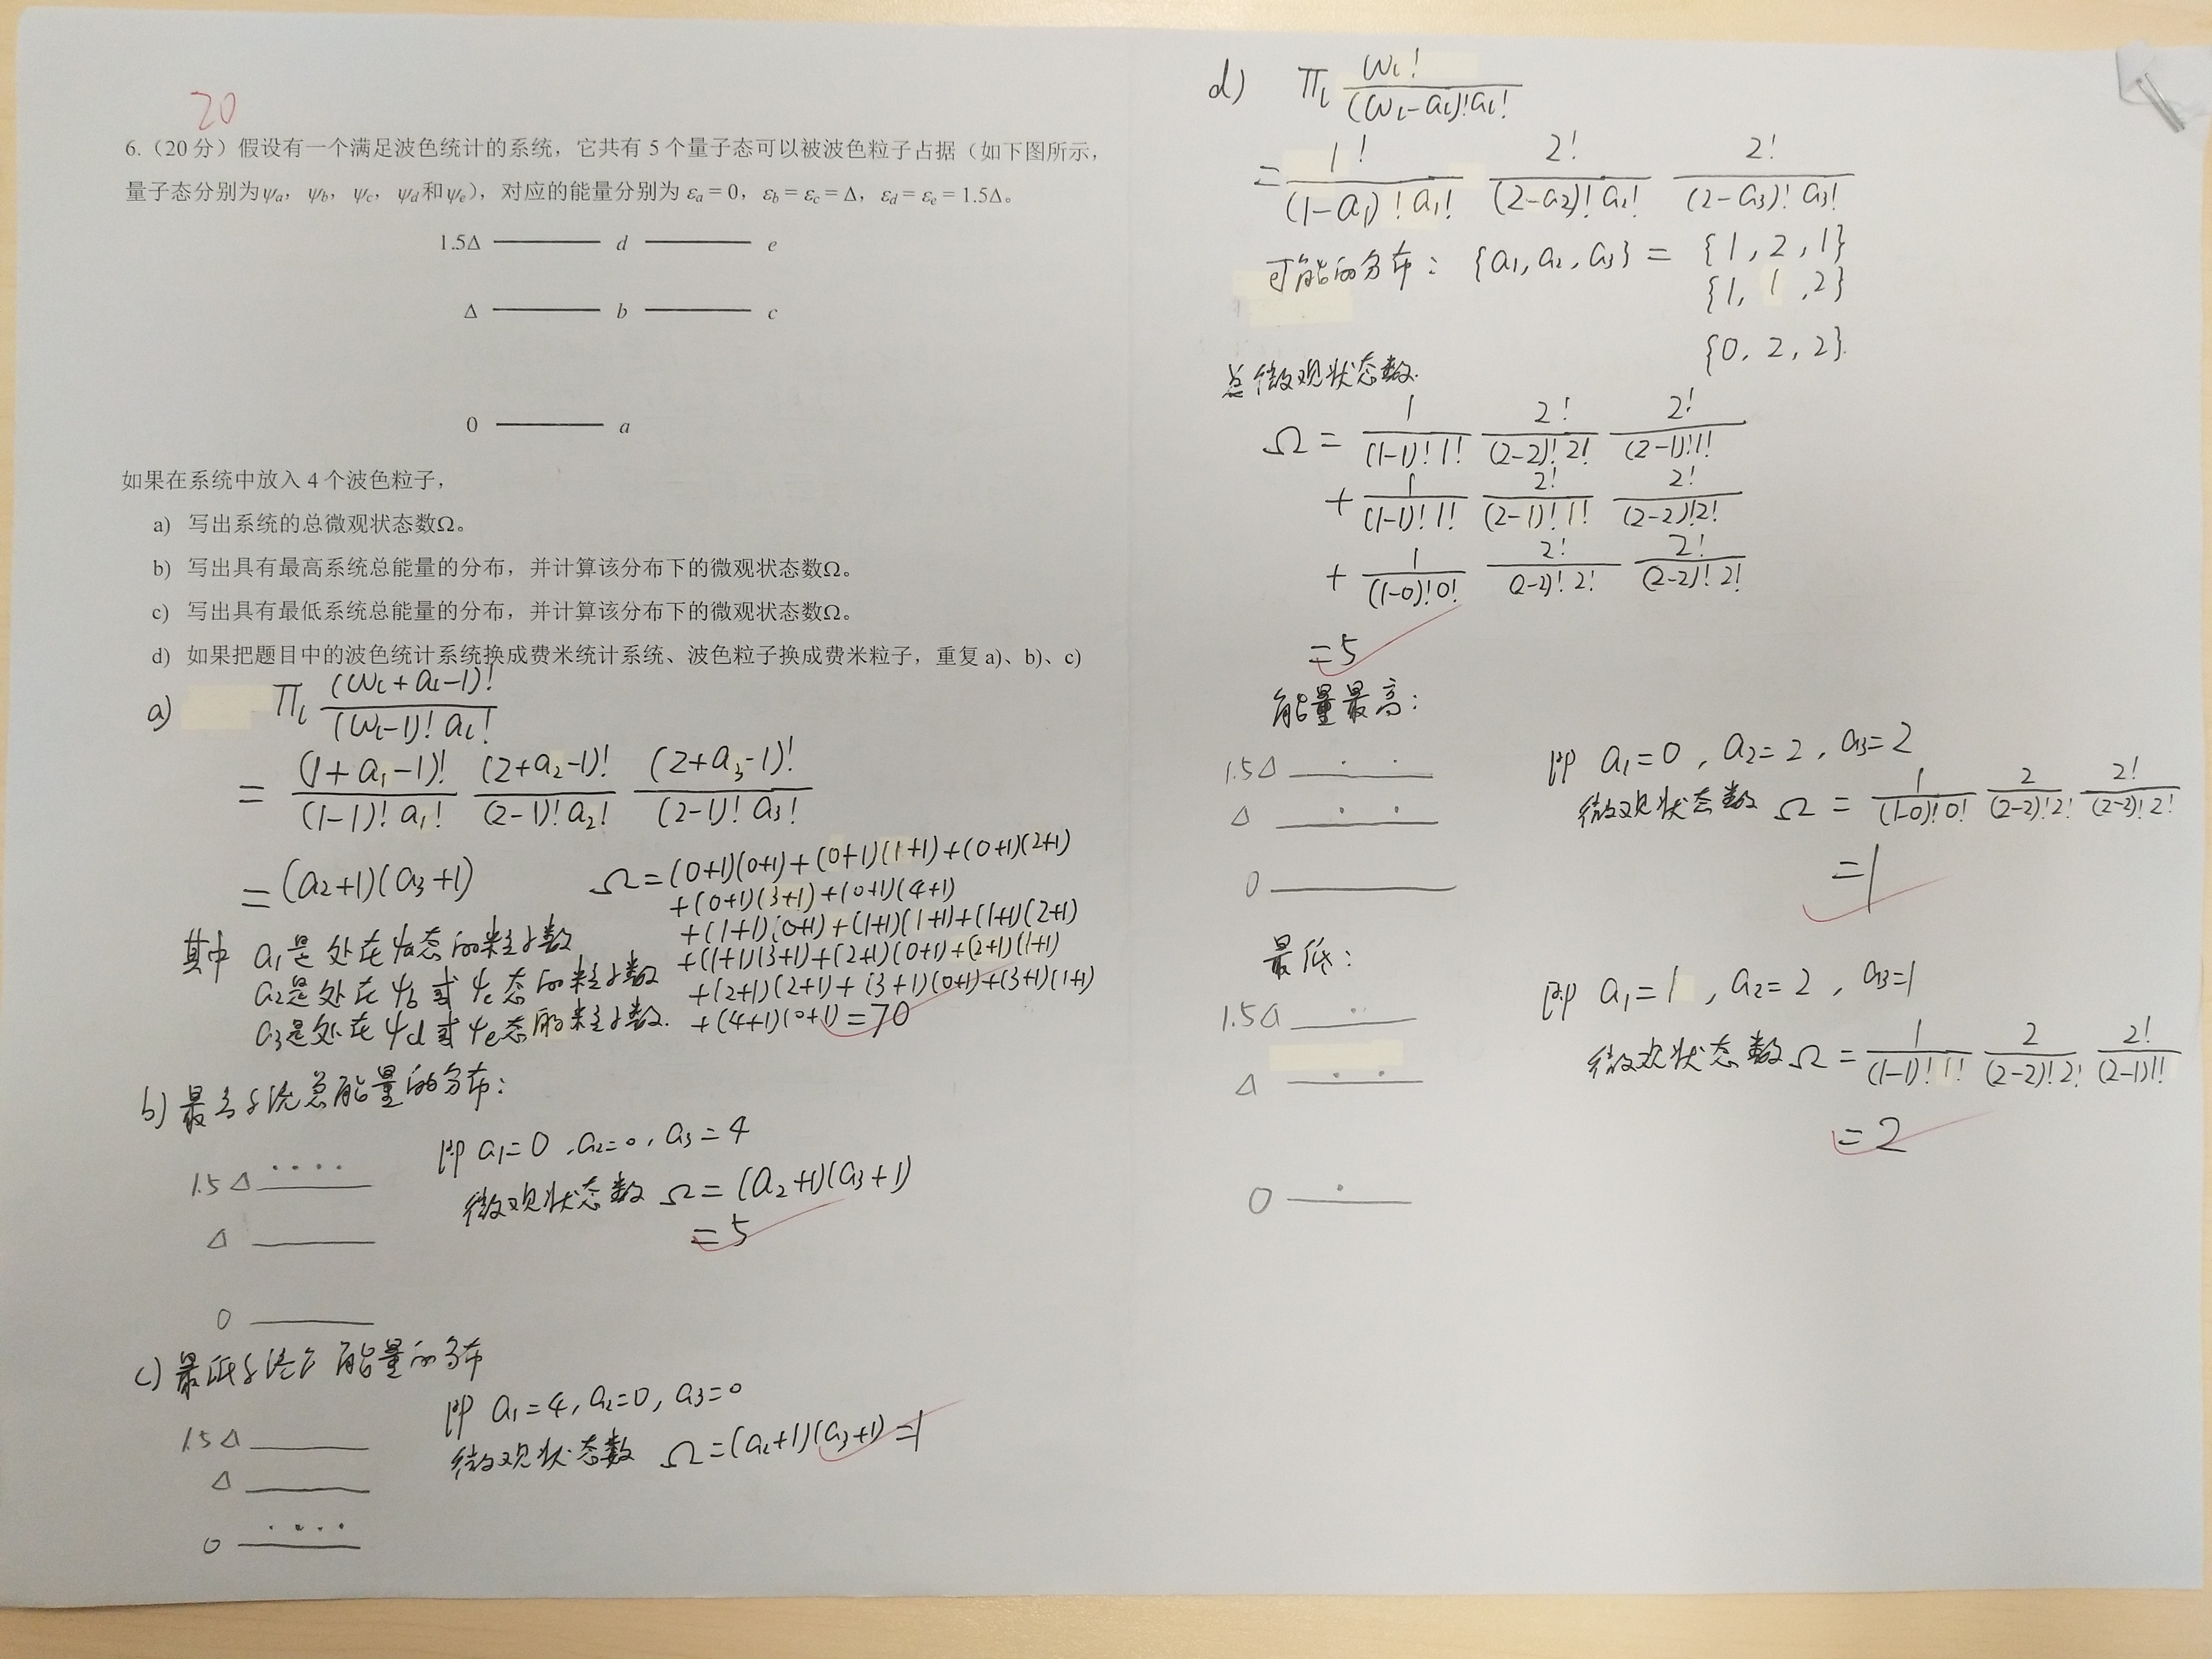 20
6.（20 分）假设有一个满足波色统计的系统，它共有 5 个量子态可以被波色粒子占据（如下图所示，
量子态分别为ψa，ψb，ψc，ψd和ψe），对应的能量分别为 εa = 0，εb = εc = Δ，εd = εe = 1.5Δ。
1.5Δ d e
Δ b c
0 a
如果在系统中放入 4 个波色粒子，
a) 写出系统的总微观状态数Ω。
b) 写出具有最高系统总能量的分布，并计算该分布下的微观状态数Ω。
c) 写出具有最低系统总能量的分布，并计算该分布下的微观状态数Ω。
d) 如果把题目中的波色统计系统换成费米统计系统、波色粒子换成费米粒子，重复 a)、b)、c)
a) Π_l (ω_l+a_l-1)! / (ω_l-1)! a_l!
= (1+a₁-1)! / (1-1)! a₁! (2+a₂-1)! / (2-1)! a₂! (2+a₃-1)! / (2-1)! a₃!
= (a₂+1)(a₃+1)
其中 a₁是处在ψa态的粒子数
a₂是处在ψb或ψc态的粒子数
a₃是处在ψd或ψe态的粒子数.
Ω=(0+1)(0+1)+(0+1)(1+1)+(0+1)(2+1)
+(0+1)(3+1)+(0+1)(4+1)
+(1+1)(0+1)+(1+1)(1+1)+(1+1)(2+1)
+(1+1)(3+1)+(2+1)(0+1)+(2+1)(1+1)
+(2+1)(2+1)+(3+1)(0+1)+(3+1)(1+1)
+(4+1)(0+1)=70
b) 最高系统总能量的分布：
1.5Δ
Δ
0
即 a₁=0, a₂=0, a₃=4
微观状态数 Ω=(a₂+1)(a₃+1)
=5
c) 最低系统总能量的分布
1.5Δ
Δ
0
即 a₁=4, a₂=0, a₃=0
微观状态数 Ω=(a₂+1)(a₃+1)=1
d) Π_l ω_l! / (ω_l-a_l)! a_l!
= 1! / (1-a₁)! a₁! 2! / (2-a₂)! a₂! 2! / (2-a₃)! a₃!
可能的分布：{a₁, a₂, a₃} = {1, 2, 1}
{1, 1, 2}
{0, 2, 2}.
总微观状态数.
Ω = 1 / (1-1)! 1! 2! / (2-2)! 2! 2! / (2-1)! 1!
+ 1 / (1-1)! 1! 2! / (2-1)! 1! 2! / (2-2)! 2!
+ 1 / (1-0)! 0! 2! / (2-2)! 2! 2! / (2-2)! 2!
=5
能量最高：
1.5Δ
Δ
0
即 a₁=0, a₂=2, a₃=2
微观状态数 Ω = 1 / (1-0)! 0! 2 / (2-2)! 2! 2! / (2-2)! 2!
=1
最低：
1.5Δ
Δ
0
即 a₁=1, a₂=2, a₃=1
微观状态数 Ω = 1 / (1-1)! 1! 2 / (2-2)! 2! 2! / (2-1)! 1!
=2